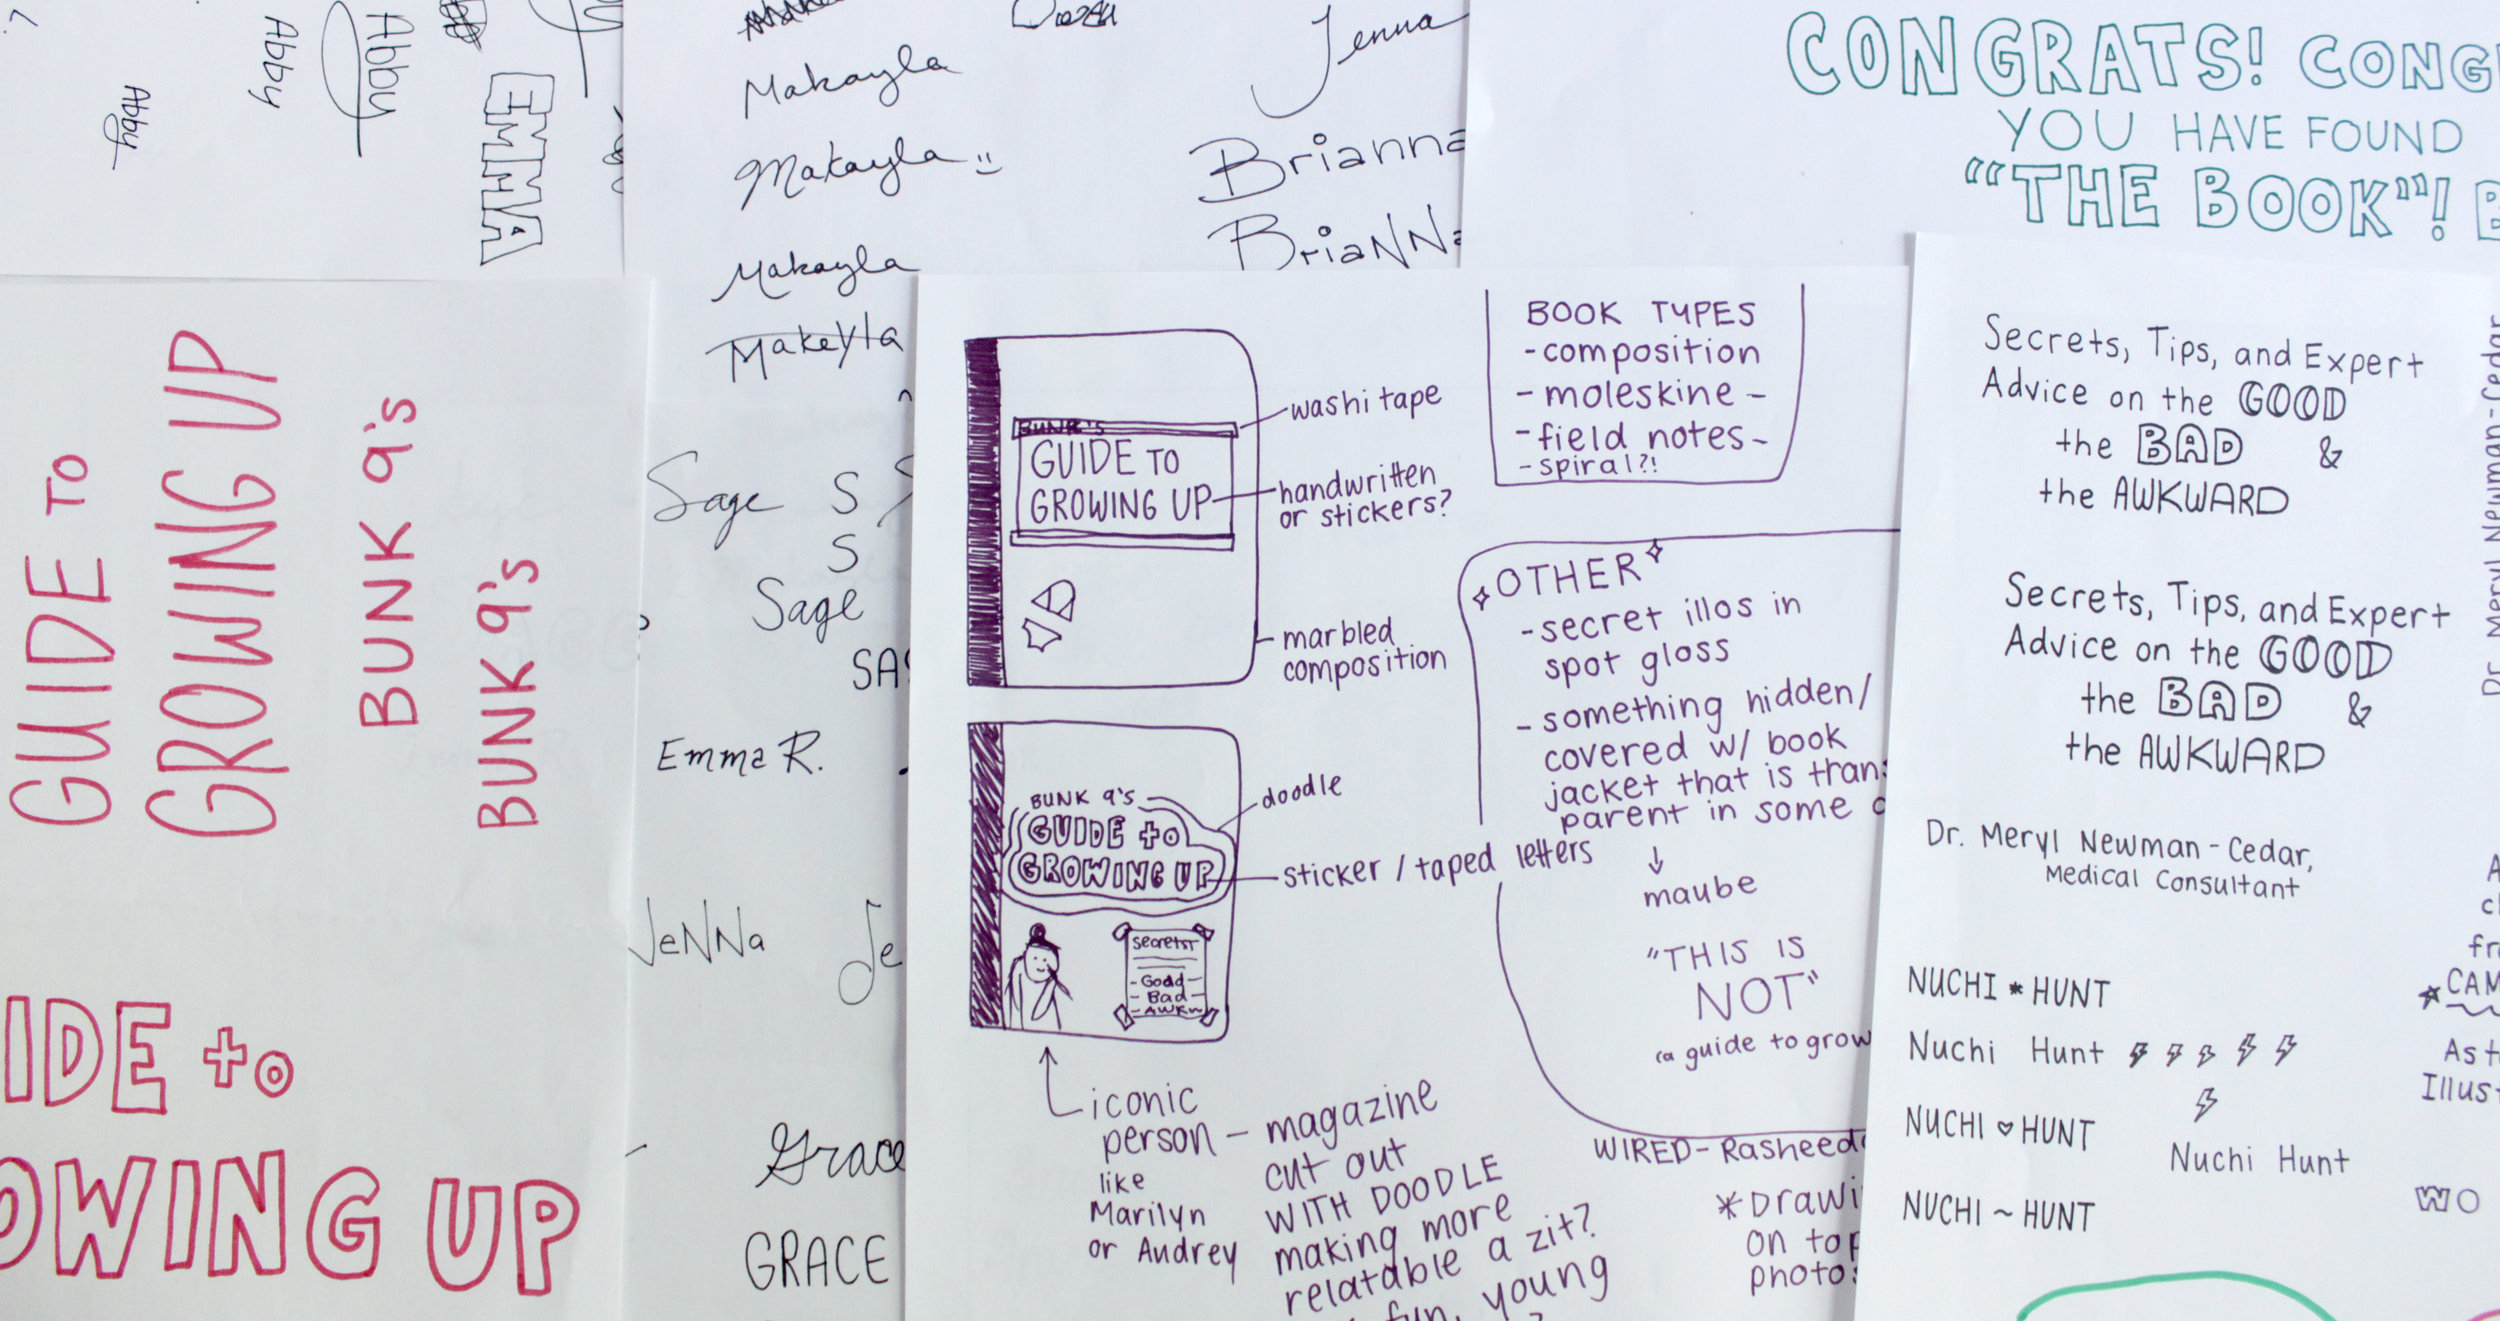 Abby
Abby
Abby
EMMA
Makayla
Makayla
Makayla
Makeyla
Jenna
Brianna
BriaNNa
CONGRATS! CONG
YOU HAVE FOUND
"THE BOOK"! B
GUIDE TO
GROWING UP
BUNK 9's
BUNK 9's
IDE to
OWING UP
Sage S S
S
Sage
SAS
Emma R.
JeNNa Je
Grace
GRACE
BUNK 9's
GUIDE TO
GROWING UP
washi tape
handwritten
or stickers?
marbled
composition
BUNK 9's
GUIDE to
GROWING UP
doodle
sticker / taped letters
Secrets
- Good -
- Bad -
- AWKW
iconic
person -
like
Marilyn
or Audrey
magazine
cut out
WITH DOODLE
making more
relatable a zit?
fun, young
BOOK TYPES
- composition
- moleskine -
- field notes -
- spiral?!
OTHER
- secret illos in
spot gloss
- something hidden/
covered w/ book
jacket that is trans
parent in some
maube
"THIS IS
NOT"
(a guide to grow
WIRED - Rasheeda
* Drawi
on top
photo
Secrets, Tips, and Expert
Advice on the GOOD
the BAD &
the AWKWARD
Secrets, Tips, and Expert
Advice on the GOOD
the BAD &
the AWKWARD
Dr. Meryl Newman-Cedar,
Medical Consultant
NUCHI * HUNT
Nuchi Hunt
NUCHI ♡ HUNT
Nuchi Hunt
NUCHI ~ HUNT
Dr. Meryl Newman-Cedar
A
cl
fr
CAM
As t
Illust
WO